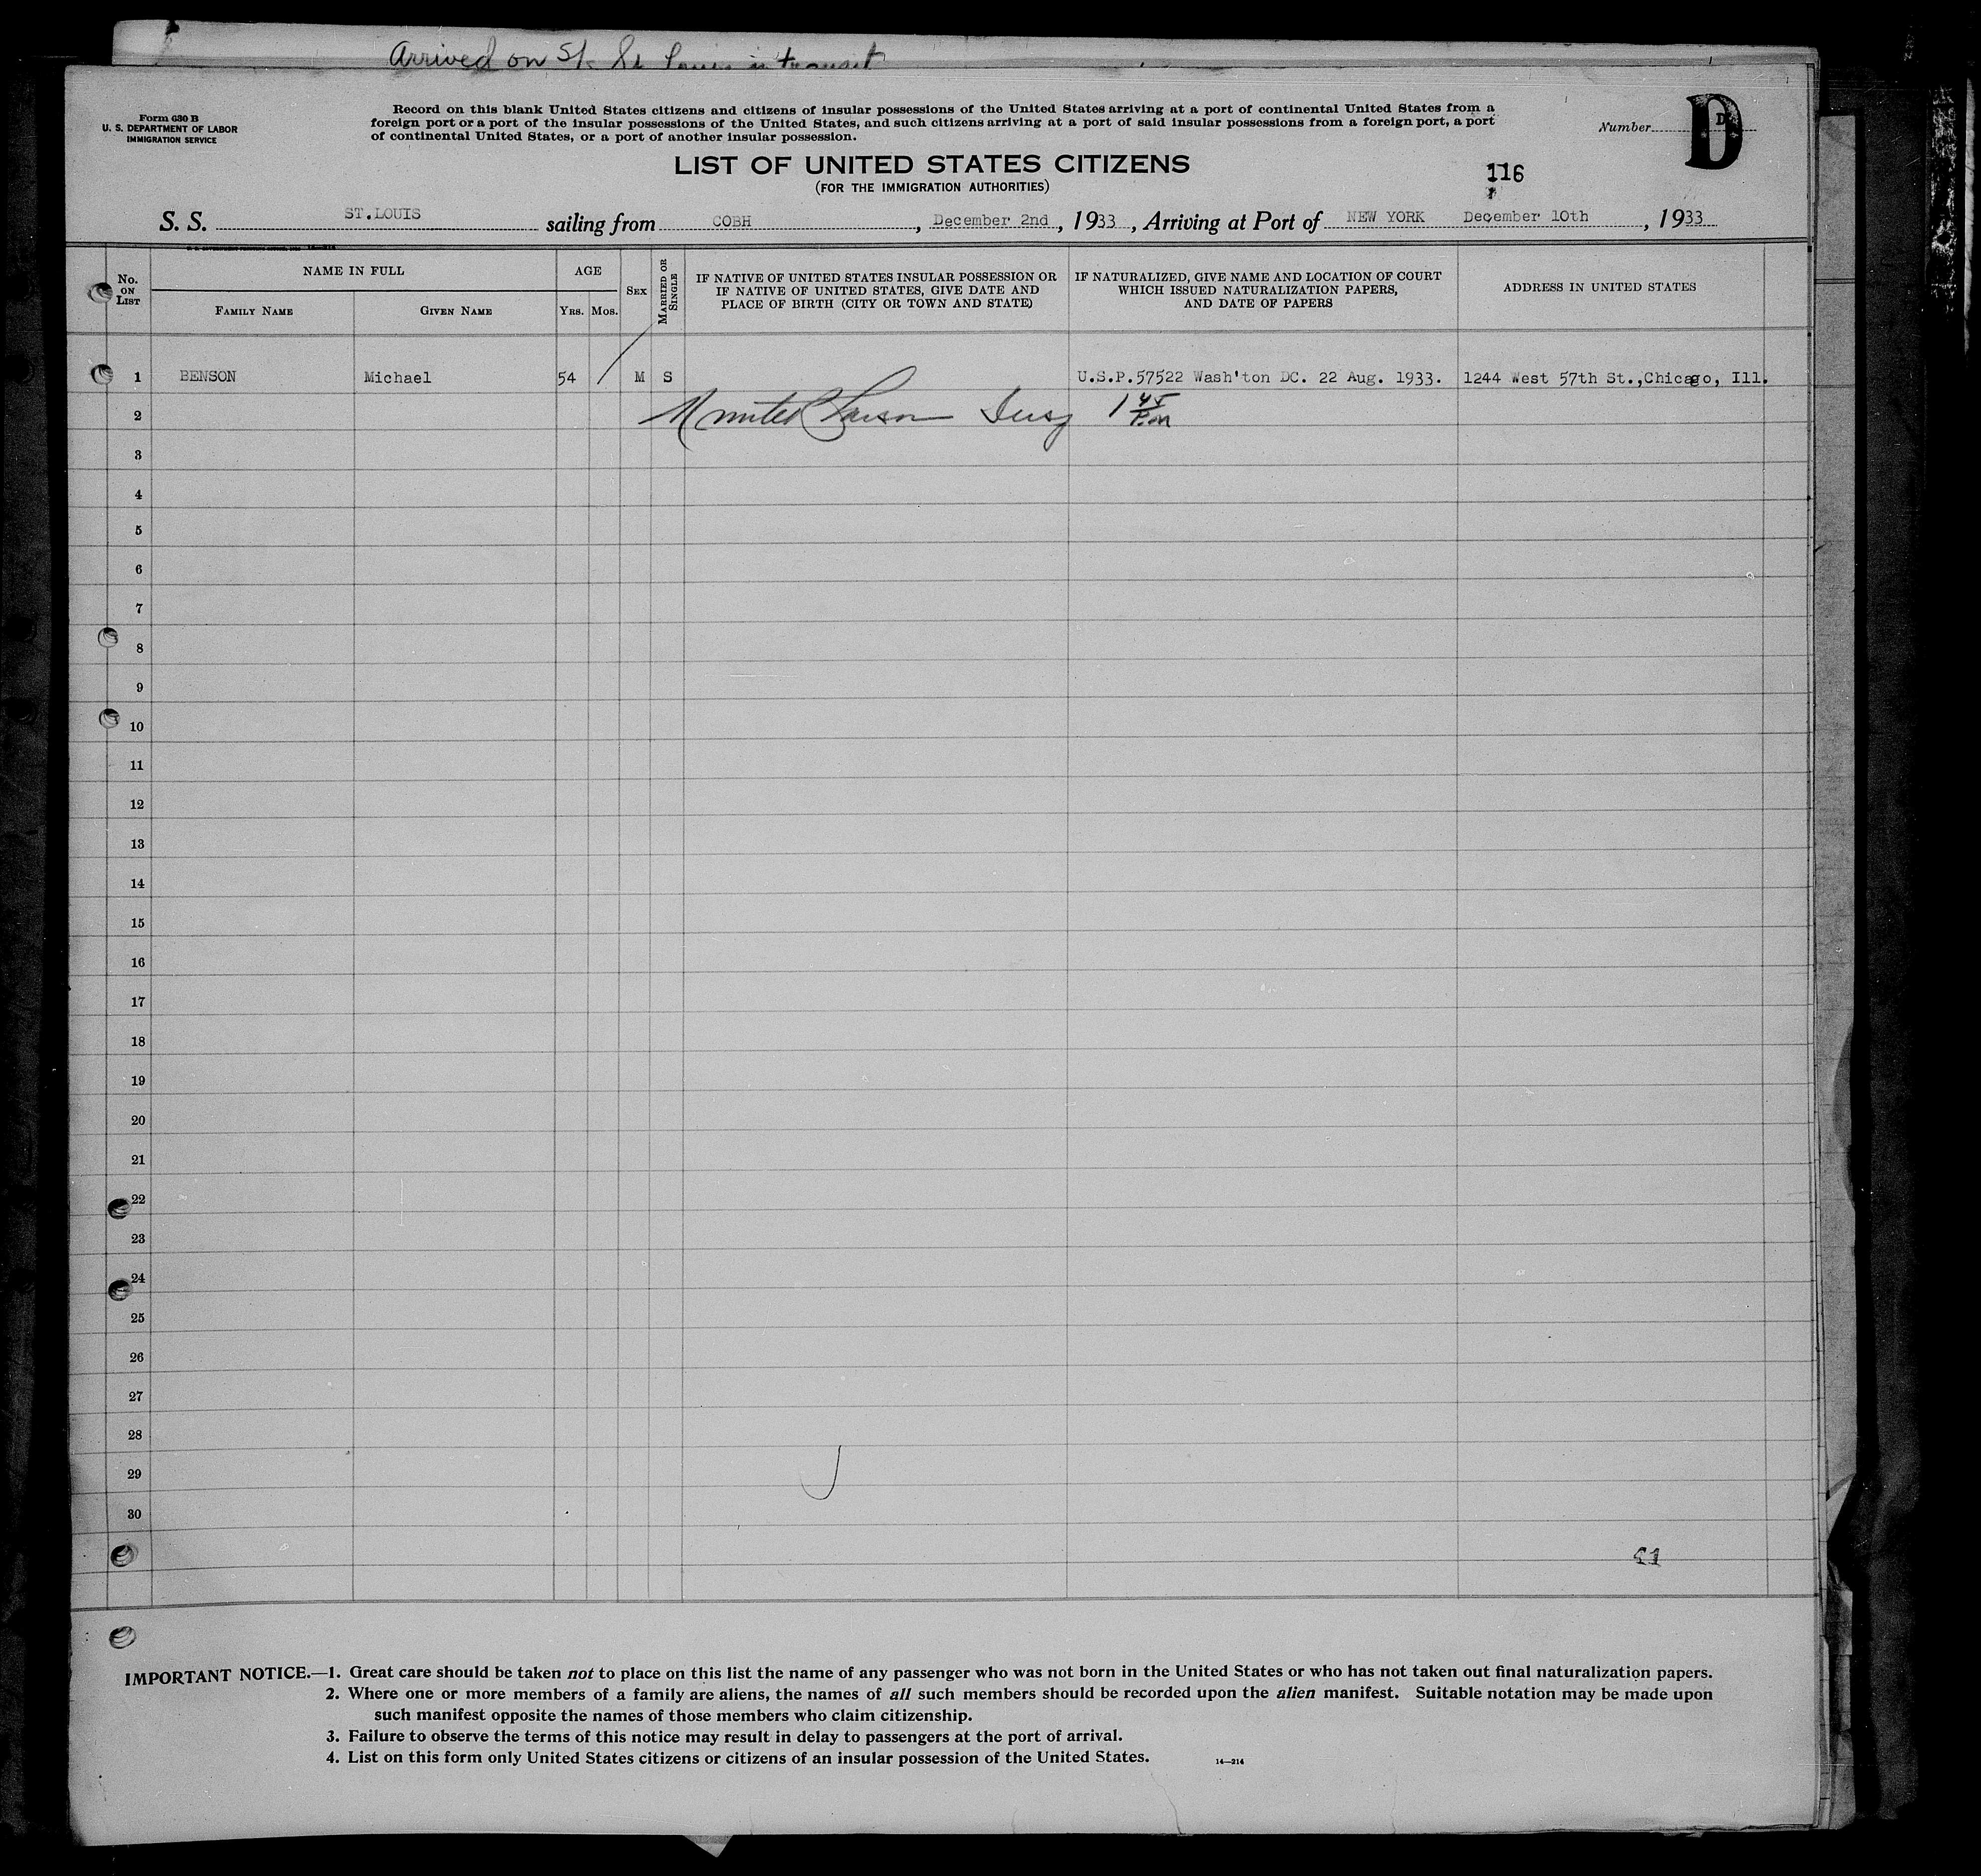 Arrived on St. St Louis in transit
Form 630 B
U. S. DEPARTMENT OF LABOR
IMMIGRATION SERVICE
Record on this blank United States citizens and citizens of insular possessions of the United States arriving at a port of continental United States from a
foreign port or a port of the insular possessions of the United States, and such citizens arriving at a port of said insular possessions from a foreign port, a port
of continental United States, or a port of another insular possession.
Number D
D
LIST OF UNITED STATES CITIZENS
(FOR THE IMMIGRATION AUTHORITIES)
116
S. S. ST.LOUIS sailing from COBH, December 2nd, 1933, Arriving at Port of NEW YORK December 10th, 1933
No. ON LIST
NAME IN FULL
FAMILY NAME
GIVEN NAME
AGE
YRS.
MOS.
SEX
MARRIED OR SINGLE
IF NATIVE OF UNITED STATES INSULAR POSSESSION OR
IF NATIVE OF UNITED STATES, GIVE DATE AND
PLACE OF BIRTH (CITY OR TOWN AND STATE)
IF NATURALIZED, GIVE NAME AND LOCATION OF COURT
WHICH ISSUED NATURALIZATION PAPERS,
AND DATE OF PAPERS
ADDRESS IN UNITED STATES
1 BENSON Michael 54 M S U.S.P.57522 Wash'ton DC. 22 Aug. 1933. 1244 West 57th St.,Chicago, Ill.
2 1 45 P.m
3
4
5
6
7
8
9
10
11
12
13
14
15
16
17
18
19
20
21
22
23
24
25
26
27
28
29
30
IMPORTANT NOTICE.—1. Great care should be taken not to place on this list the name of any passenger who was not born in the United States or who has not taken out final naturalization papers.
2. Where one or more members of a family are aliens, the names of all such members should be recorded upon the alien manifest. Suitable notation may be made upon
such manifest opposite the names of those members who claim citizenship.
3. Failure to observe the terms of this notice may result in delay to passengers at the port of arrival.
4. List on this form only United States citizens or citizens of an insular possession of the United States.
14—214